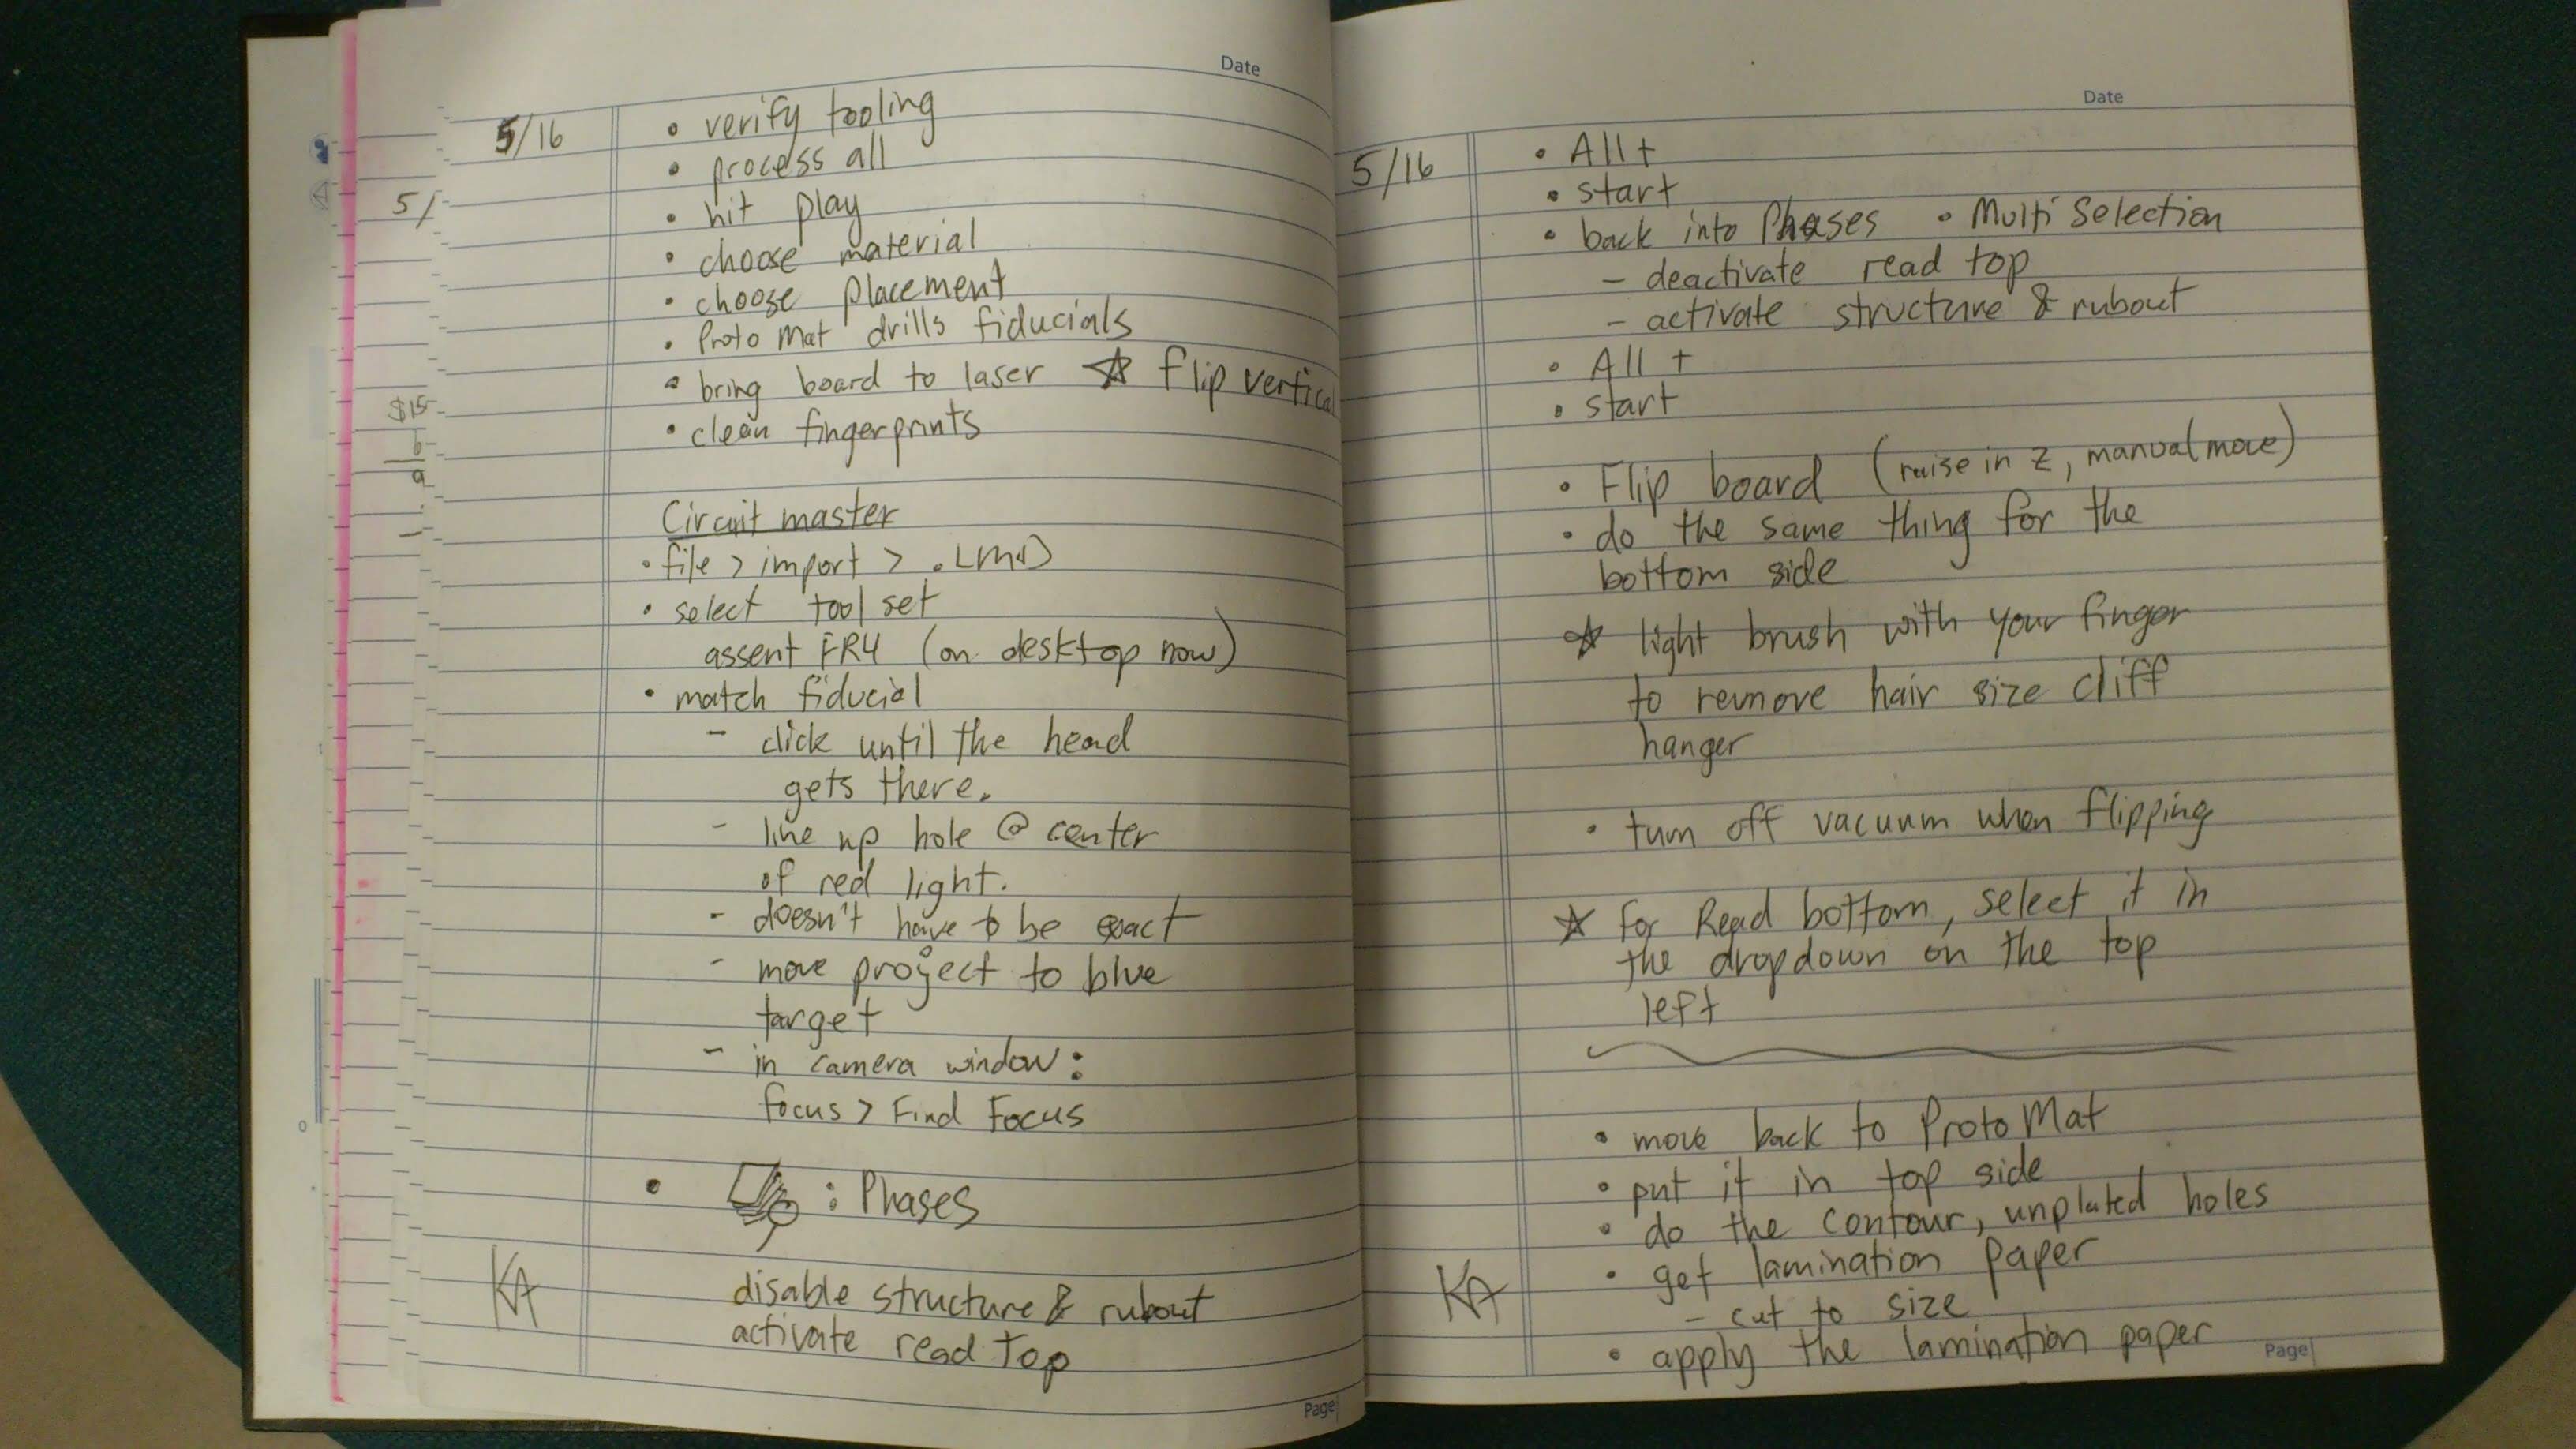 Date
5/16
• verify tooling
• process all
5/
• hit play
• choose material
• choose placement
• Proto Mat drills fiducials
• bring board to laser ☆ flip vertical
$15
• clean fingerprints
6
9
Circuit master
• file > import > .LMD
• select tool set
assent FR4 (on desktop now)
• match fiducial
- click until the head
gets there.
- line up hole @ center
of red light.
- doesn't have to be exact
- move project to blue
target
- in camera window:
focus > Find Focus
• : Phases
KA
disable structure & rubout
activate read Top
Page
Date
5/16
• All +
• start
• back into Phases • Multi Selection
- deactivate read top
- activate structure & rubout
• All +
• start
• Flip board (raise in z, manual move)
• do the same thing for the
bottom side
☆ light brush with your finger
to remove hair size cliff
hanger
• turn off vacuum when flipping
☆ for Read bottom, select it in
the dropdown on the top
left
• move back to Proto Mat
• put it in top side
• do the contour, unplated holes
KA
• get lamination paper
- cut to size
• apply the lamination paper
Page